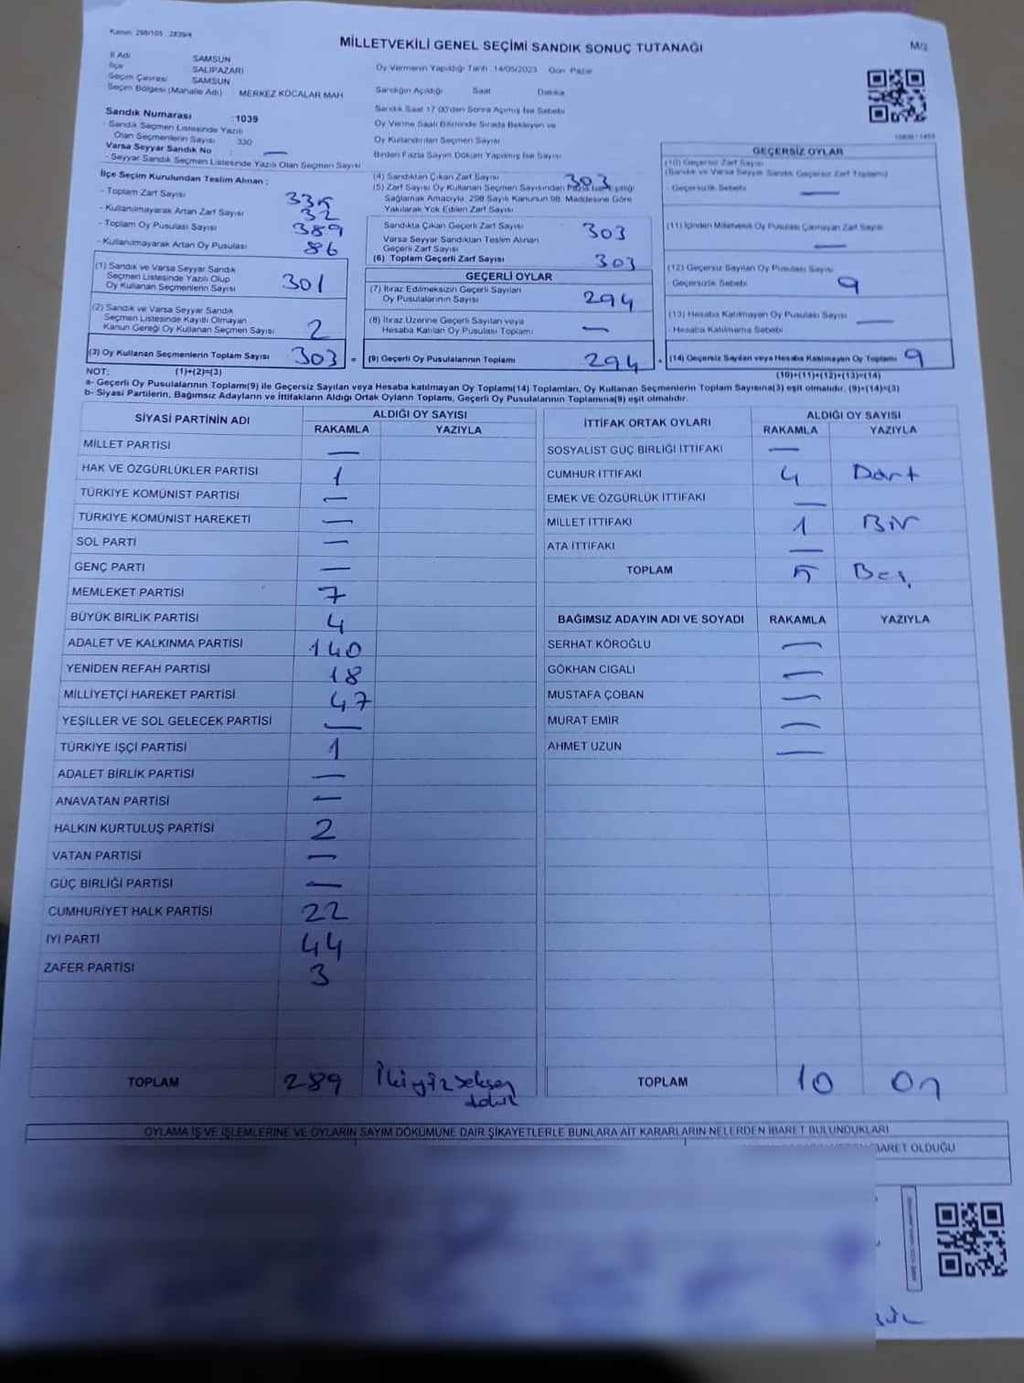 Kanun: 298/105 2839/4
MİLLETVEKİLİ GENEL SEÇİMİ SANDIK SONUÇ TUTANAĞI
İl Adı SAMSUN
İlçe SALIPAZARI
Seçim Çevresi SAMSUN
Seçim Bölgesi (Mahalle Adı) : MERKEZ KOCALAR MAH
Sandık Numarası :1039
- Sandık Seçmen Listesinde Yazılı
Olan Seçmenlerin Sayısı : 330
Varsa Seyyar Sandık No : —
- Seyyar Sandık Seçmen Listesinde Yazılı Olan Seçmen Sayısı
Oy Vermenin Yapıldığı Tarih :14/05/2023 Gün :Pazar
Sandığın Açıldığı Saat Dakika
Sandık Saat 17:00'den Sonra Açılmış İse Sebebi
Oy Verme Saati Bitiminde Sırada Bekleyen ve
Oy Kullandırılan Seçmen Sayısı
Birden Fazla Sayım Döküm Yapılmış İse Sayısı
İlçe Seçim Kurulundan Teslim Alınan :
- Toplam Zarf Sayısı 335
- Kullanılmayarak Artan Zarf Sayısı 32
- Toplam Oy Pusulası Sayısı 389
- Kullanılmayarak Artan Oy Pusulası 86
(1) Sandık ve Varsa Seyyar Sandık
Seçmen Listesinde Yazılı Olup
Oy Kullanan Seçmenlerin Sayısı 301
(2) Sandık ve Varsa Seyyar Sandık
Seçmen Listesinde Kayıtlı Olmayan
Kanun Gereği Oy Kullanan Seçmen Sayısı 2
(3) Oy Kullanan Seçmenlerin Toplam Sayısı 303 =
(4) Sandıktan Çıkan Zarf Sayısı 303
(5) Zarf Sayısı Oy Kullanan Seçmen Sayısından Fazla ise, Eşitliği
Sağlamak Amacıyla, 298 Sayılı Kanunun 98. Maddesine Göre
Yakılarak Yok Edilen Zarf Sayısı
Sandıkta Çıkan Geçerli Zarf Sayısı 303
Varsa Seyyar Sandıktan Teslim Alınan
Geçerli Zarf Sayısı
(6) Toplam Geçerli Zarf Sayısı 303
GEÇERLİ OYLAR
(7) İtiraz Edilmeksizin Geçerli Sayılan
Oy Pusulalarının Sayısı 294
(8) İtiraz Üzerine Geçerli Sayılan veya
Hesaba Katılan Oy Pusulası Toplamı —
(9) Geçerli Oy Pusulalarının Toplamı 294 +
GEÇERSİZ OYLAR
(10) Geçersiz Zarf Sayısı
(Sandık ve Varsa Seyyar Sandık Geçersiz Zarf Toplamı)
- Geçersizlik Sebebi —
(11) İçinden Milletvekili Oy Pusulası Çıkmayan Zarf Sayısı
—
(12) Geçersiz Sayılan Oy Pusulası Sayısı
- Geçersizlik Sebebi 9
(13) Hesaba Katılmayan Oy Pusulası Sayısı —
- Hesaba Katılmama Sebebi
(14) Geçersiz Sayılan veya Hesaba Katılmayan Oy Toplamı 9
NOT: (1)+(2)=(3) (10)+(11)+(12)+(13)=(14)
a- Geçerli Oy Pusulalarının Toplamı(9) ile Geçersiz Sayılan veya Hesaba katılmayan Oy Toplamı(14) Toplamları, Oy Kullanan Seçmenlerin Toplam Sayısına(3) eşit olmalıdır. (9)+(14)=(3)
b- Siyasi Partilerin, Bağımsız Adayların ve İttifakların Aldığı Ortak Oyların Toplamı, Geçerli Oy Pusulalarının Toplamına(9) eşit olmalıdır.
SİYASİ PARTİNİN ADI ALDIĞI OY SAYISI
RAKAMLA YAZIYLA
MİLLET PARTİSİ —
HAK VE ÖZGÜRLÜKLER PARTİSİ 1
TÜRKİYE KOMÜNİST PARTİSİ —
TÜRKİYE KOMÜNİST HAREKETİ —
SOL PARTİ —
GENÇ PARTİ —
MEMLEKET PARTİSİ 7
BÜYÜK BİRLİK PARTİSİ 4
ADALET VE KALKINMA PARTİSİ 140
YENİDEN REFAH PARTİSİ 18
MİLLİYETÇİ HAREKET PARTİSİ 47
YEŞİLLER VE SOL GELECEK PARTİSİ —
TÜRKİYE İŞÇİ PARTİSİ 1
ADALET BİRLİK PARTİSİ —
ANAVATAN PARTİSİ —
HALKIN KURTULUŞ PARTİSİ 2
VATAN PARTİSİ —
GÜÇ BİRLİĞİ PARTİSİ —
CUMHURİYET HALK PARTİSİ 22
İYİ PARTİ 44
ZAFER PARTİSİ 3
TOPLAM 289 İkiyüz seksen
dokuz
İTTİFAK ORTAK OYLARI ALDIĞI OY SAYISI
RAKAMLA YAZIYLA
SOSYALİST GÜÇ BİRLİĞİ İTTİFAKI —
CUMHUR İTTİFAKI 4 Dört
EMEK VE ÖZGÜRLÜK İTTİFAKI —
MİLLET İTTİFAKI 1 Bir
ATA İTTİFAKI —
TOPLAM 5 Beş
BAĞIMSIZ ADAYIN ADI VE SOYADI RAKAMLA YAZIYLA
SERHAT KÖROĞLU —
GÖKHAN CIGALI —
MUSTAFA ÇOBAN —
MURAT EMİR —
AHMET UZUN —
TOPLAM 10 On
OYLAMA İŞ VE İŞLEMLERİNE VE OYLARIN SAYIM DÖKÜMÜNE DAİR ŞİKAYETLERLE BUNLARA AİT KARARLARIN NELERDEN İBARET BULUNDUKLARI
İBARET OLDUĞU